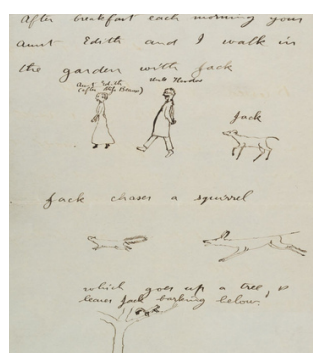 After breakfast each morning your
Aunt Edith and I walk in
the garden with Jack
Aunt Edith
(after Miss Beans)
Jack
Jack chases a squirrel
which goes up a tree, &
leaves Jack barking below.